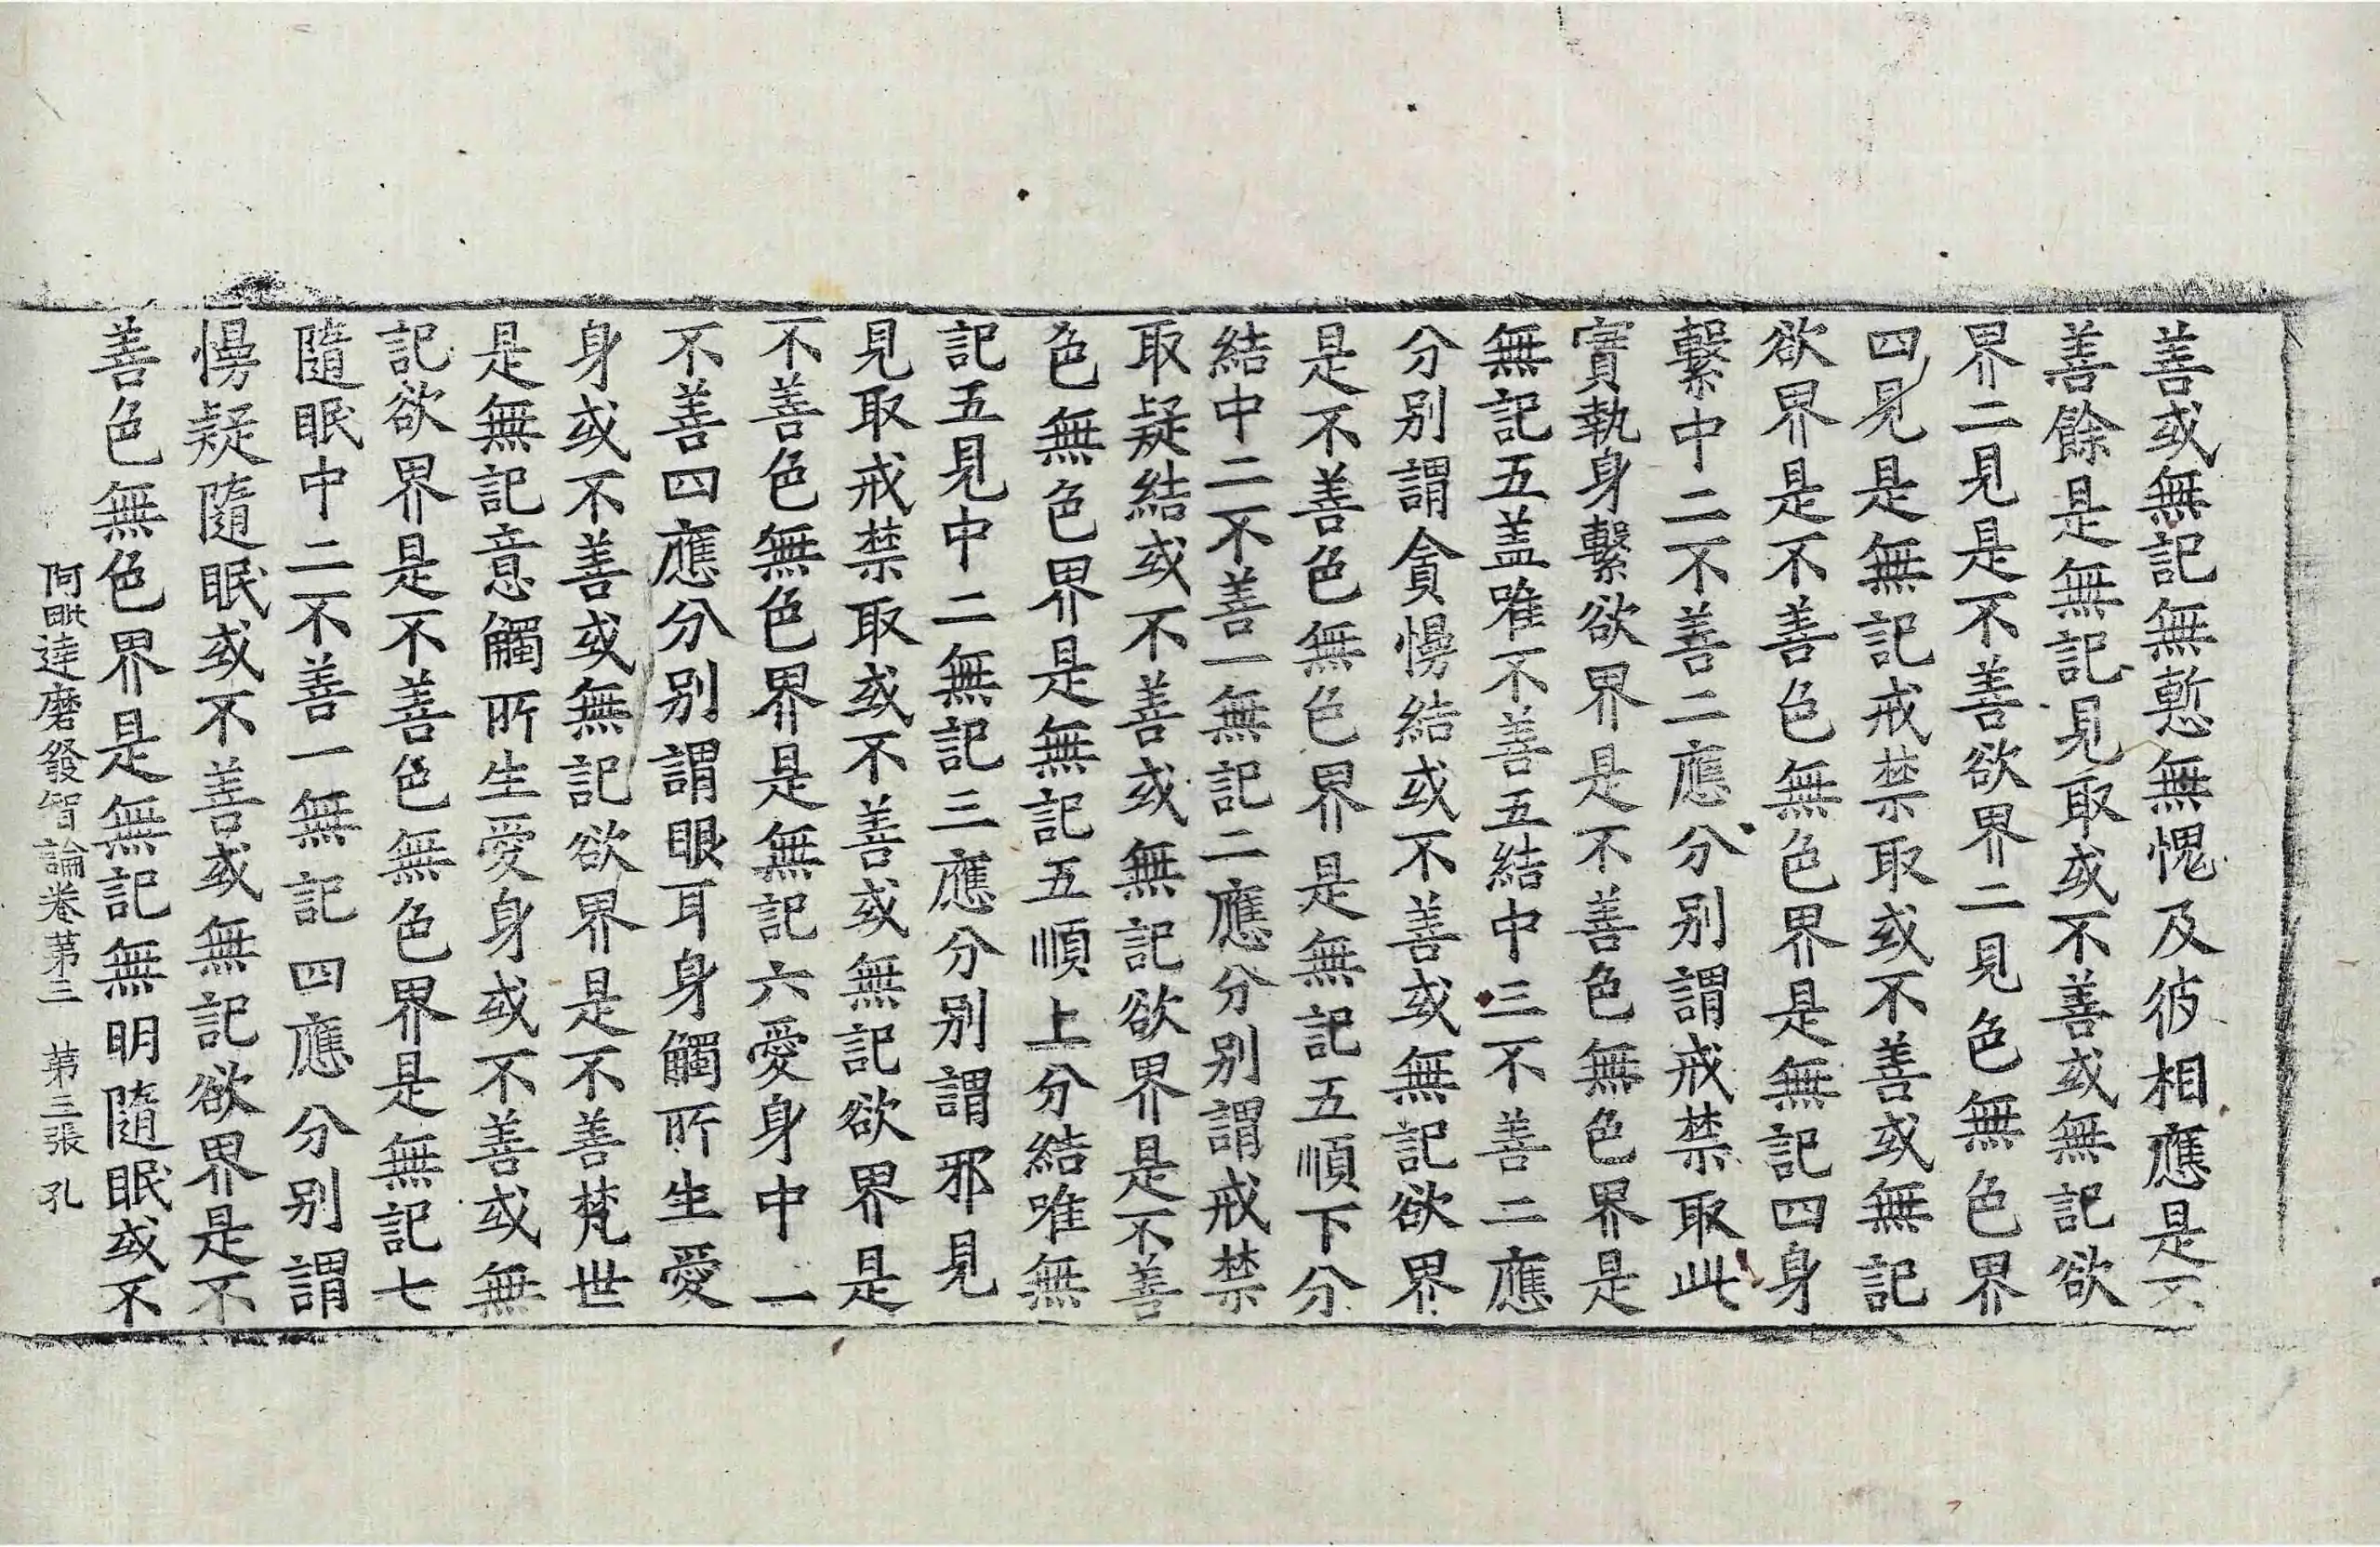 善或無記無慙無愧及彼相應是不
善餘是無記見取或不善或無記欲
界二見是不善欲界二見色無色界
四見是無記戒禁取或不善或無記
欲界是不善色無色界是無記四身
繫中二不善二應分別謂戒禁取此
實執身繫欲界是不善色無色界是
無記五盖唯不善五結中三不善二應
分別謂貪慢結或不善或無記欲界
是不善色無色界是無記五順下分
結中二不善一無記二應分別謂戒禁
取疑結或不善或無記欲界是不善
色無色界是無記五順上分結唯無
記五見中二無記三應分別謂邪見
見取戒禁取或不善或無記欲界是
不善色無色界是無記六愛身中一
不善四應分別謂眼耳身觸所生愛
身或不善或無記欲界是不善梵世
是無記意觸所生愛身或不善或無
記欲界是不善色無色界是無記七
隨眠中二不善一無記四應分別謂
慢疑隨眠或不善或無記欲界是不
善色無色界是無記無明隨眠或不
阿毗達磨發智論卷苐三 苐三張 孔